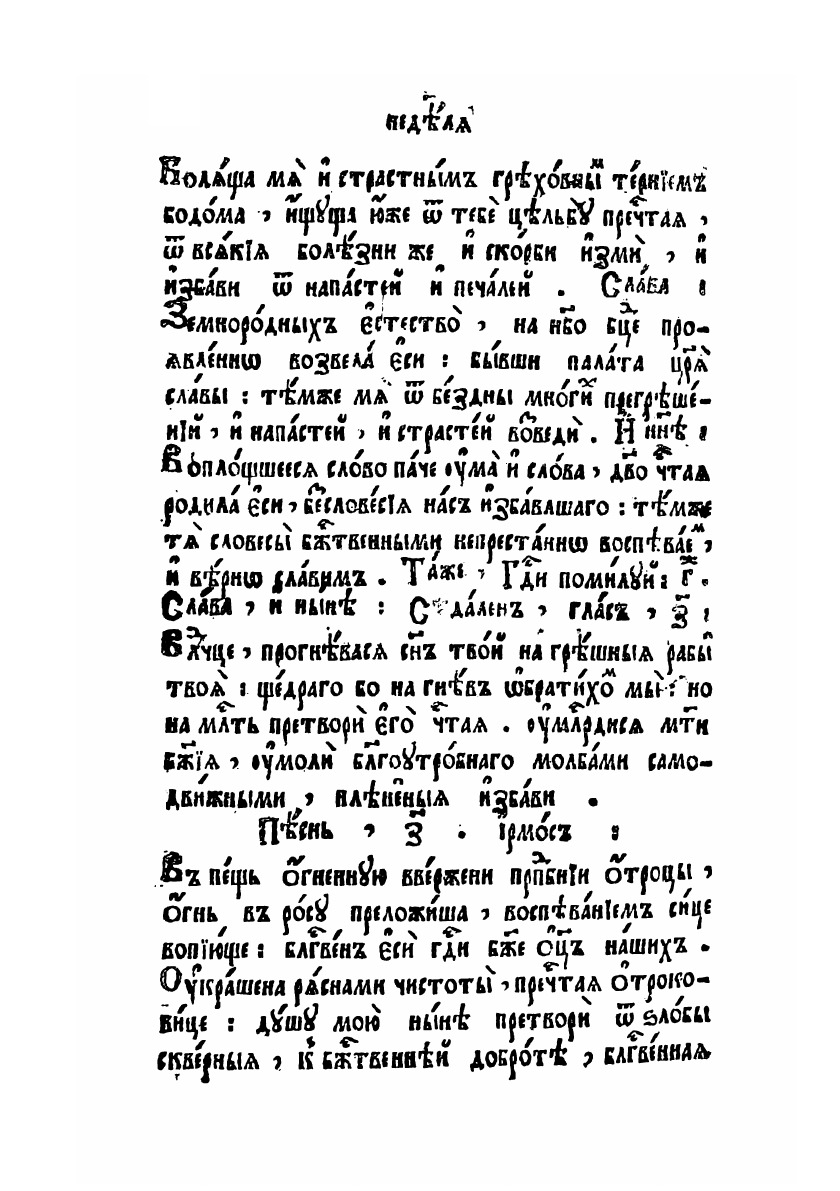 недѣ́лѧ
Бодѧ́ща мѧ̀ и҆ стра́стнымъ грѣхо́внымⷨ те́рнїемъ
бодо́ма , и҆́щꙋща ю҆́же ѿ тебѐ цѣльбꙋ̀ пречⷭ҇таѧ ,
ѿ всѧ́кїѧ болѣ́зни же и҆ ско́рби и҆змѝ , и҆
и҆зба́ви ѿ напа́стей и҆ печа́лей . Сла́ва :
Земноро́дныхъ є҆стество̀ , на нб҃о бцⷣе про-
ѧвле́ннѡ возвела̀ є҆сѝ : бы́вши пала́та цр҃ѧ̀
сла́вы : тѣ́мже мѧ̀ ѿ бе́здны мно́гиⷯ прегрѣше́-
нїй , и҆ напа́стей , и҆ страсте́й возведѝ . И҆ нн҃ѣ :
Вопло́щшеесѧ сло́во па́че ᲂу҆ма̀ и҆ сло́ва , дв҃о чⷭ҇таѧ
родила̀ є҆сѝ , безслове́сїѧ на́съ и҆зба́вльшаго : тѣ́мже
тѧ̀ словесы̀ бжⷭ҇твенными непреста́ннѡ воспѣва́еⷨ ,
и҆ вѣ́рнѡ сла́вимъ . Та́же , Гдⷭ҇и поми́лꙋй : г҃ⷤ .
Сла́ва , и нынѣ : Сѣда́ленъ , гла́съ , з҃ :
Влⷣчце , прогнѣ́васѧ сн҃ъ тво́й на грѣ́шныѧ рабы̀
твоѧ̀ : ще́драго бо на гнѣ́въ ѡ҆брати́хоⷨ мы̀ : но
на млⷭ҇ть претворѝ є҆го̀ чⷭ҇таѧ . ᲂу҆млⷭ҇рдисѧ мт҃и
бж҃їѧ , ᲂу҆молѝ бл҃гоꙋтро́бнаго молба́ми само-
дви́жными , плѣне́ныѧ и҆зба́ви .
Пѣ́снь , з҃ . І҆рмо́съ :
Въ пе́щь ѻ҆́гненнꙋю вве́ржени прпⷣбнїи ѻ҆́троцы ,
ѻ҆́гнь въ ро́сꙋ преложи́ша , воспѣва́нїемъ си́це
вопїю́ще : блгⷭ҇ве́нъ є҆сѝ гдⷭ҇и бж҃е ѻ҆ц҃ъ на́шихъ .
Оу҆кра́шена рѧ́снами чистоты̀ , пречⷭ҇таѧ ѻ҆троко-
ви́це : дꙋ́шꙋ мою̀ ны́нѣ претворѝ ѿ ѕло́бы
скве́рныѧ , к бжⷭ҇твеннѣй добро́тѣ , блгⷭ҇ве́ннаѧ